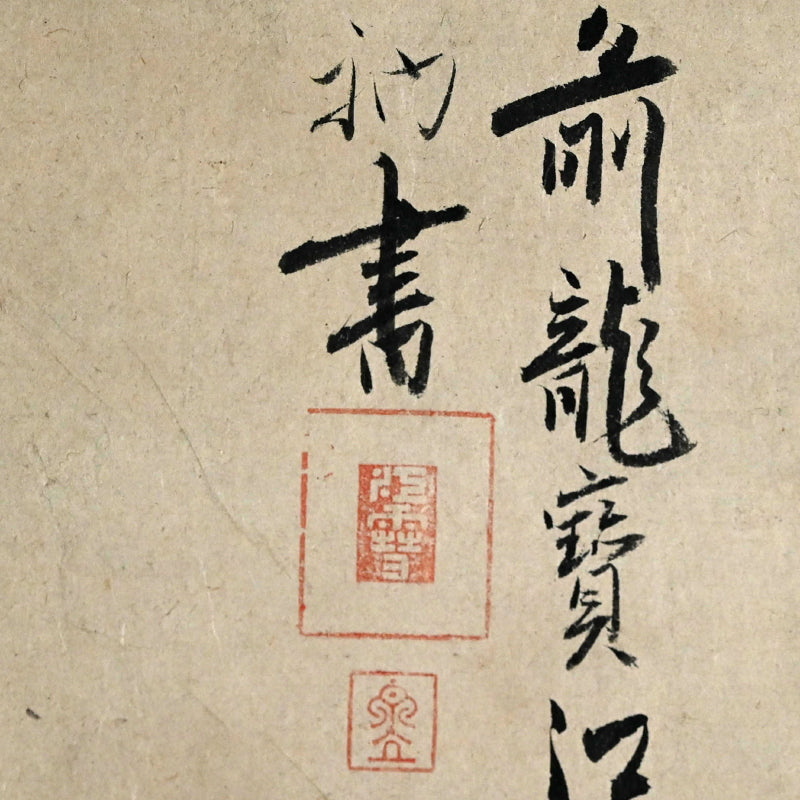 前龍寶江
衲書